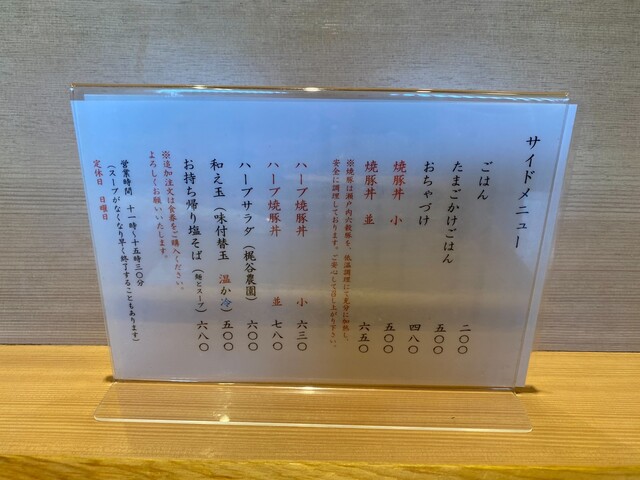 サイドメニュー
ごはん 二〇〇
たまごかけごはん 五〇〇
おちゃづけ 四八〇
焼豚丼 小 五〇〇
焼豚丼 並 六五〇
※焼豚は瀬戸内六穀豚を、低温調理にて充分に加熱し
安全に調理しております。ご安心して召し上がり下さい。
ハーブ焼豚丼 小 六三〇
ハーブ焼豚丼 並 七八〇
ハーブサラダ（梶谷農園） 六〇〇
和え玉（味付替玉 温か冷） 五〇〇
お持ち帰り塩そば（麺とスープ） 六八〇
※追加注文は食券をご購入ください。
よろしくお願いいたします。
営業時間 十一時～十五時三〇分
（スープがなくなり早く終了することもあります）
定休日 日曜日